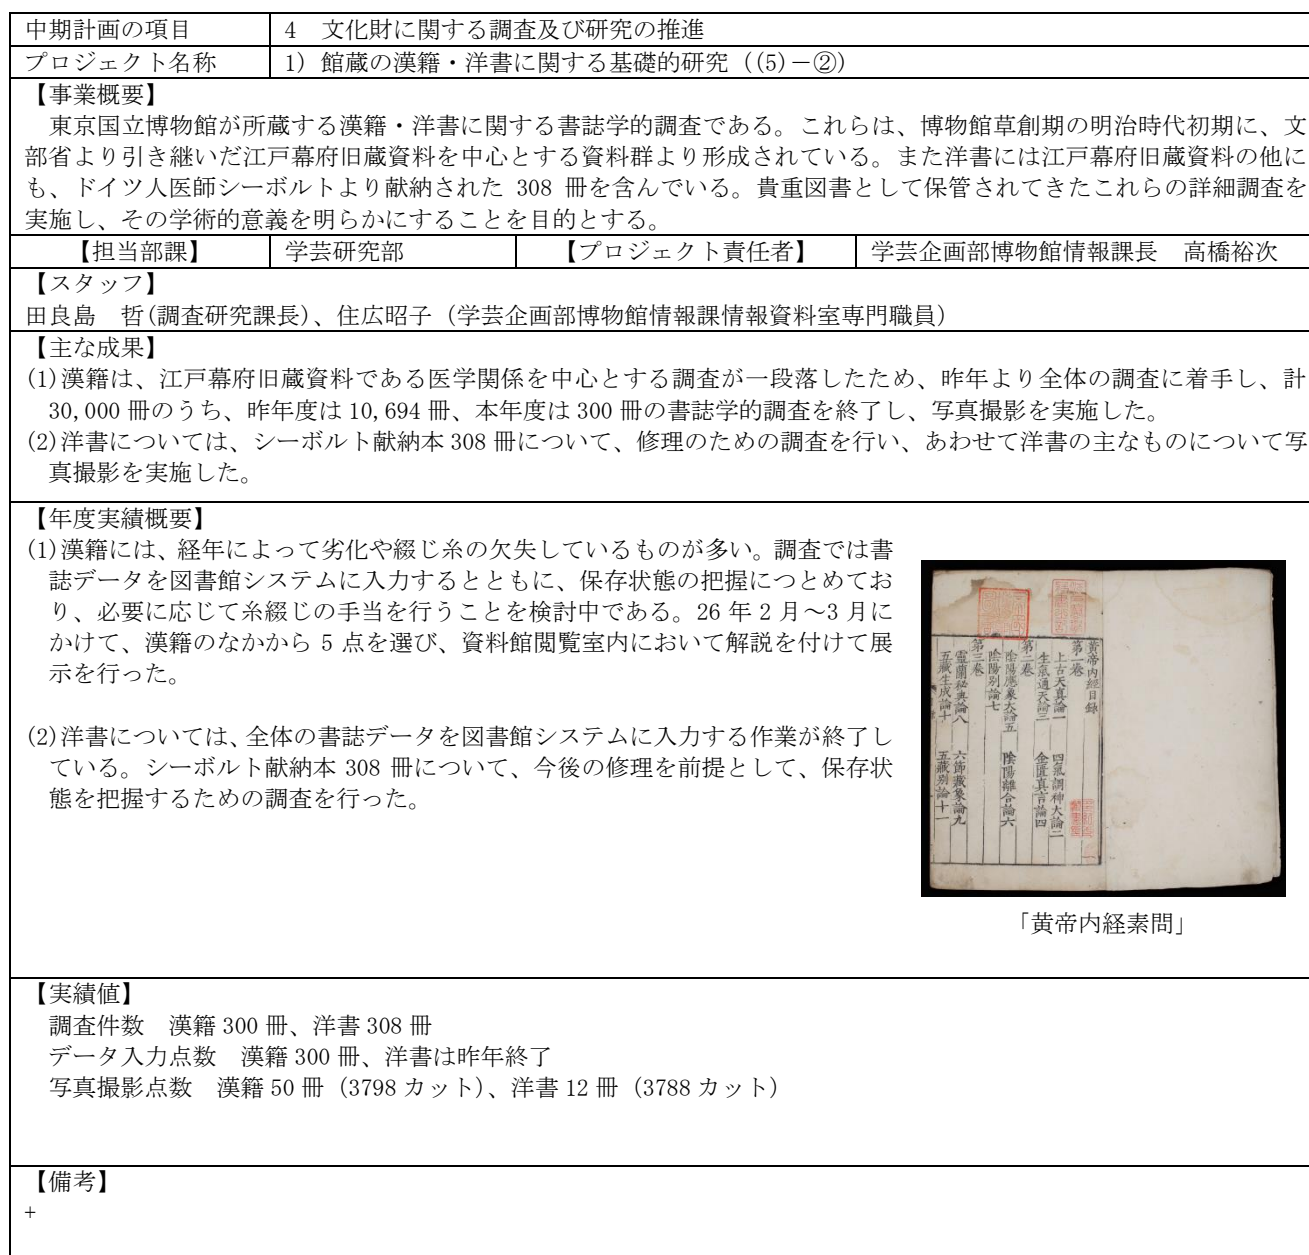 中期計画の項目 4 文化財に関する調査及び研究の推進
プロジェクト名称 1) 館蔵の漢籍・洋書に関する基礎的研究((5)－②)
【事業概要】
東京国立博物館が所蔵する漢籍・洋書に関する書誌学的調査である。これらは、博物館草創期の明治時代初期に、文
部省より引き継いだ江戸幕府旧蔵資料を中心とする資料群より形成されている。また洋書には江戸幕府旧蔵資料の他に
も、ドイツ人医師シーボルトより献納された 308 冊を含んでいる。貴重図書として保管されてきたこれらの詳細調査を
実施し、その学術的意義を明らかにすることを目的とする。
【担当部課】 学芸研究部 【プロジェクト責任者】 学芸企画部博物館情報課長 高橋裕次
【スタッフ】
田良島 哲(調査研究課長)、住広昭子(学芸企画部博物館情報課情報資料室専門職員)
【主な成果】
(1)漢籍は、江戸幕府旧蔵資料である医学関係を中心とする調査が一段落したため、昨年より全体の調査に着手し、計
30,000 冊のうち、昨年度は 10,694 冊、本年度は 300 冊の書誌学的調査を終了し、写真撮影を実施した。
(2)洋書については、シーボルト献納本 308 冊について、修理のための調査を行い、あわせて洋書の主なものについて写
真撮影を実施した。
【年度実績概要】
(1)漢籍には、経年によって劣化や綴じ糸の欠失しているものが多い。調査では書
誌データを図書館システムに入力するとともに、保存状態の把握につとめてお
り、必要に応じて糸綴じの手当を行うことを検討中である。26 年 2 月～3 月に
かけて、漢籍のなかから 5 点を選び、資料館閲覧室内において解説を付けて展
示を行った。
(2)洋書については、全体の書誌データを図書館システムに入力する作業が終了し
ている。シーボルト献納本 308 冊について、今後の修理を前提として、保存状
態を把握するための調査を行った。
黄帝内經目錄
第一卷
上古天真論一 四氣調神大論二
生氣通天論三 金匱真言論四
第二卷
陰陽應象大論五 陰陽離合論六
陰陽別論七
第三卷
靈蘭秘典論八 六節藏象論九
五藏生成論十 五藏別論十一
「黄帝内経素問」
【実績値】
調査件数 漢籍 300 冊、洋書 308 冊
データ入力点数 漢籍 300 冊、洋書は昨年終了
写真撮影点数 漢籍 50 冊(3798 カット)、洋書 12 冊(3788 カット)
【備考】
+